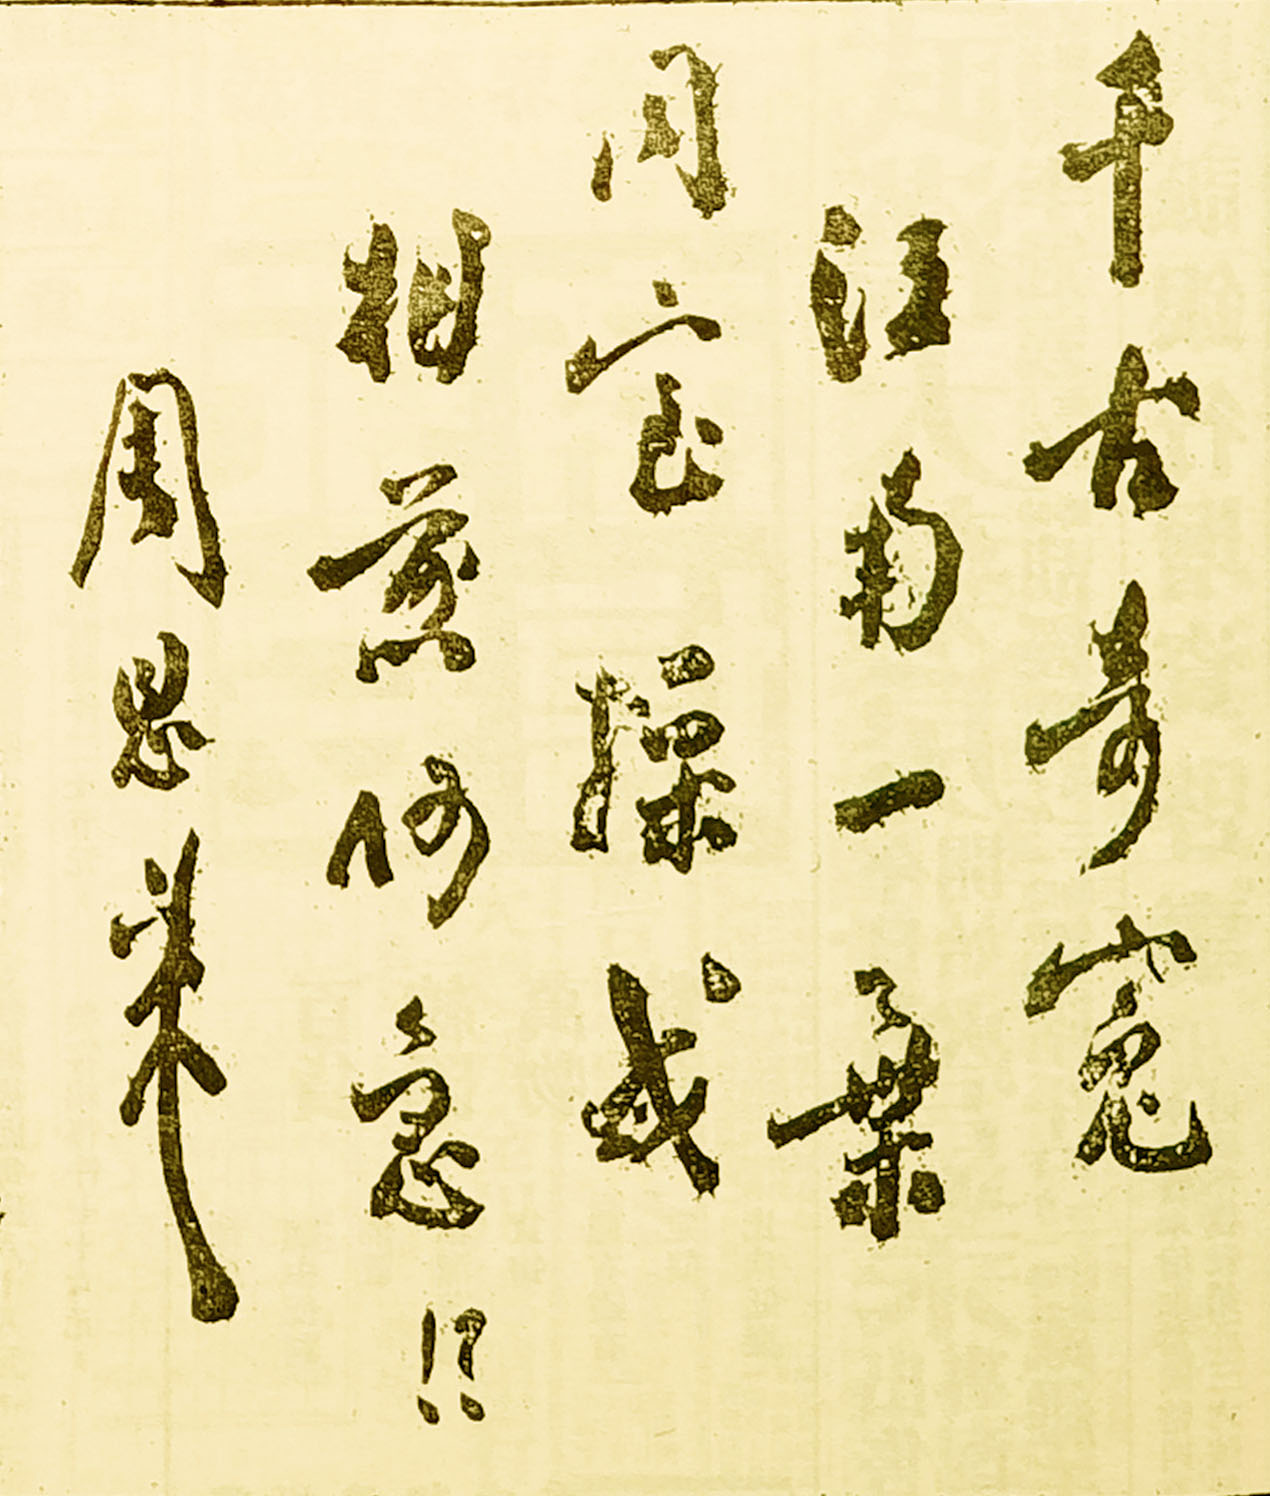 千古奇寃
江南一葉
同室操戈
相煎何急!?
周恩来